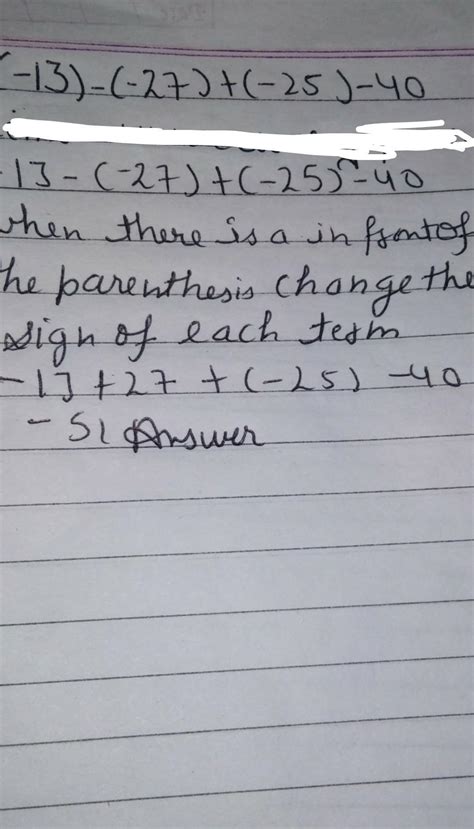 (-13)-(-27)+(-25)-40
-13-(-27)+(-25)-40
when there is a in front of
the parenthesis change the
sign of each term
-13+27+(-25)-40
-51 Answer